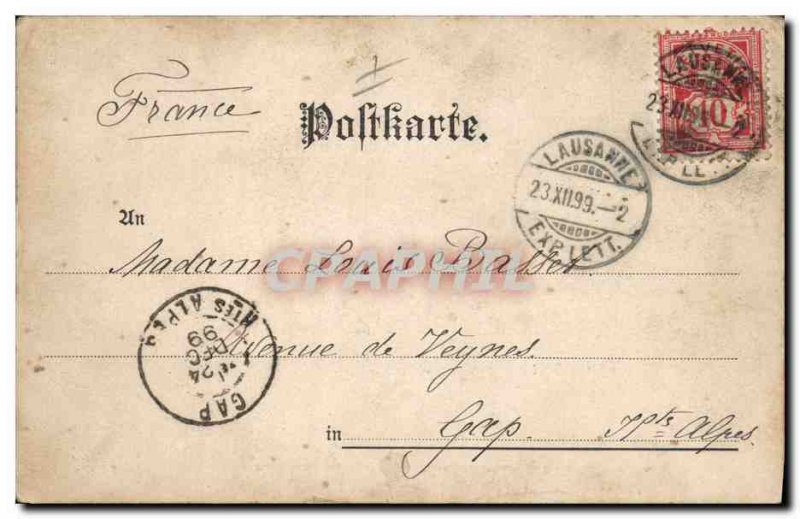 France
Postkarte.
LAUSANNE
23.XII.99.—2
EXP.LETT.
LAUSANNE
23.XII.
10
2
EXP.LE
An
Madame Louis
CPAPHIL
Avenue de Veynes
in Gap Htes Alpes
GAP
24
DEC
99
HTES ALPES